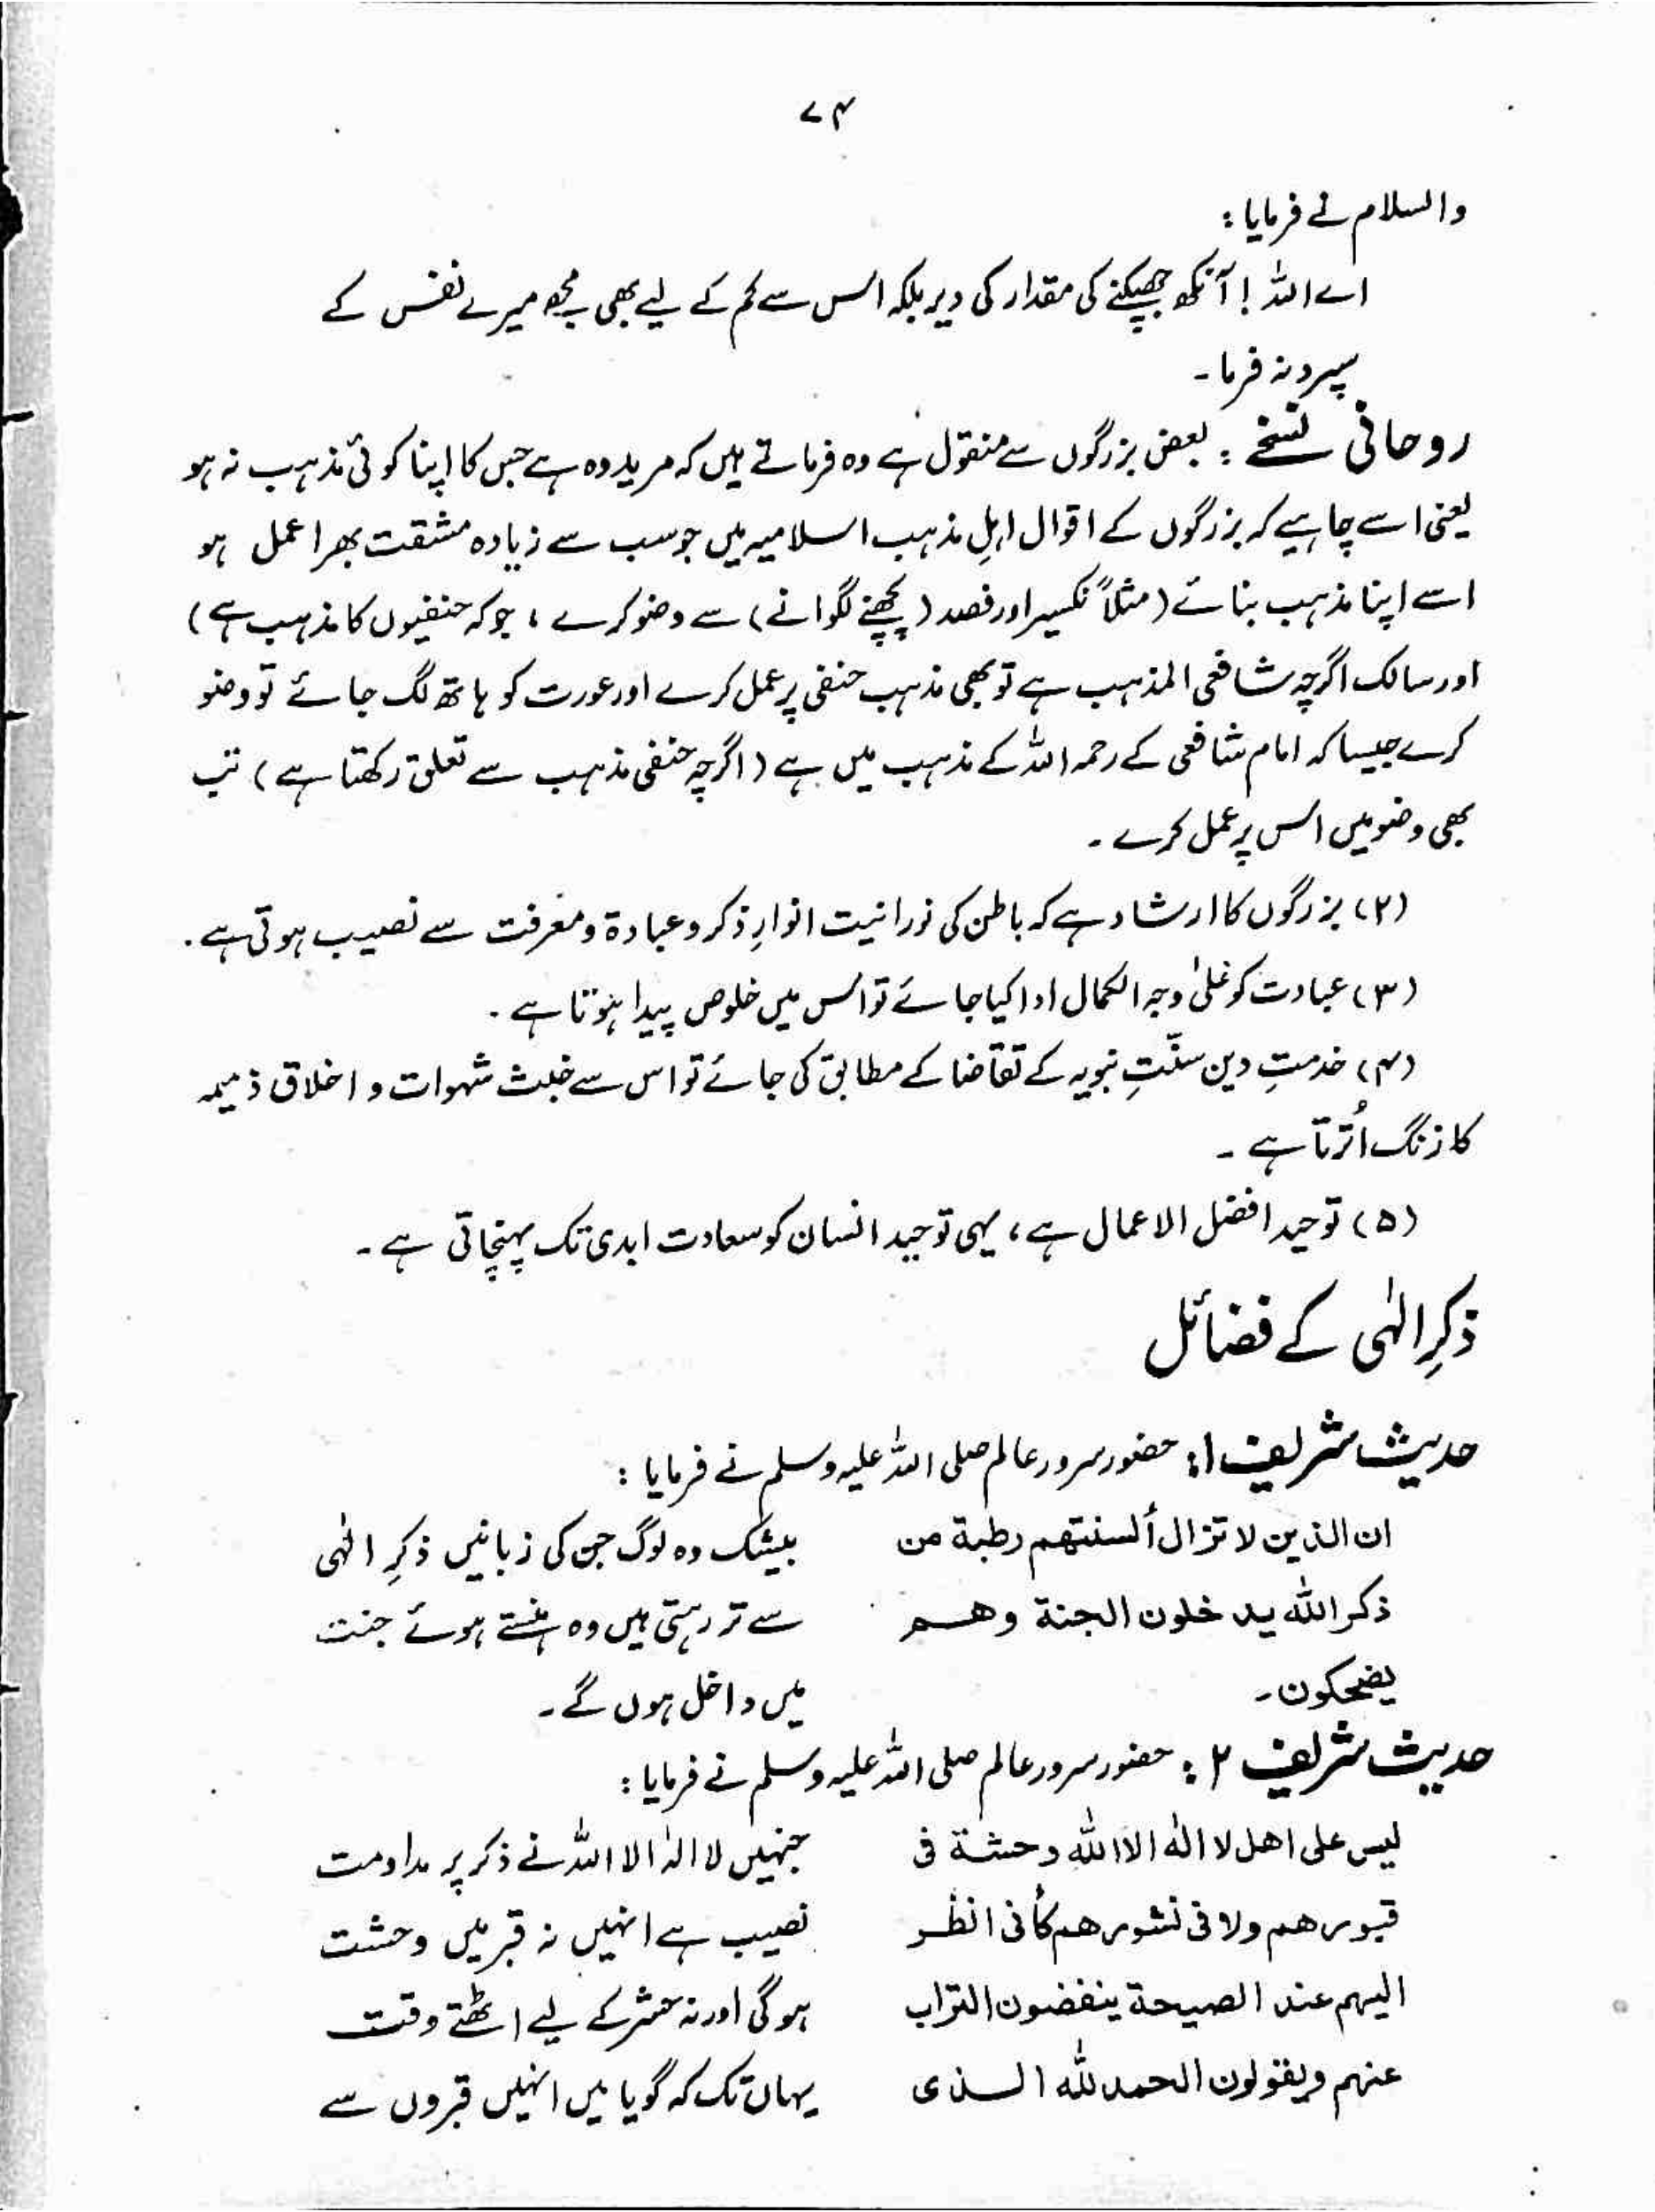 ۷۴
والسلام نے فرمایا :
اے اللہ ! آنکھ جھپکنے کی مقدار کی دیر بلکہ اس سے کم کے لیے بھی مجھ میرے نفس کے
سپرد نہ فرما ۔
روحانی نسخے : بعض بزرگوں سے منقول ہے وہ فرماتے ہیں کہ مرید وہ ہے جس کا اپنا کوئی مذہب نہ ہو
یعنی اسے چاہیے کہ بزرگوں کے اقوال اہلِ مذہب اسلامیہ میں جو سب سے زیادہ مشقت بھرا عمل ہو
اسے اپنا مذہب بنائے (مثلاً نکسیر اور فصد (پچھنے لگوانے) سے وضو کرے ، جو کہ حنفیوں کا مذہب ہے)
اور سالک اگرچہ شافعی المذہب ہے تو بھی مذہب حنفی پر عمل کرے اور عورت کو ہاتھ لگ جائے تو وضو
کرے جیسا کہ امام شافعی کے رحمہ اللہ کے مذہب میں ہے (اگرچہ حنفی مذہب سے تعلق رکھتا ہے) تب
بھی وضو میں اس پر عمل کرے ۔
(۲) بزرگوں کا ارشاد ہے کہ باطن کی نورانیت انوارِ ذکر و عبادۃ و معرفت سے نصیب ہوتی ہے ۔
(۳) عبادت کو علیٰ وجہ الکمال ادا کیا جائے تو اس میں خلوص پیدا ہوتا ہے ۔
(۴) خدمتِ دین سنّتِ نبویہ کے تقاضا کے مطابق کی جائے تو اس سے خبث شہوات و اخلاق ذمیمہ
کا زنگ اُترتا ہے ۔
(۵) توحید افضل الاعمال ہے ، یہی توحید انسان کو سعادت ابدی تک پہنچاتی ہے ۔
ذکرِ الٰہی کے فضائل
حدیث شریف ۱: حضور سرور عالم صلی اللہ علیہ وسلم نے فرمایا :
ان الذین لا تزال ألسنتهم رطبة من
ذکر الله یدخلون الجنة وهم
یضحکون۔
بیشک وہ لوگ جن کی زبانیں ذکرِ الٰہی
سے تر رہتی ہیں وہ ہنستے ہوئے جنت
میں داخل ہوں گے ۔
حدیث شریف ۲ : حضور سرور عالم صلی اللہ علیہ وسلم نے فرمایا :
لیس علی اهل لا اله الا الله وحشة فی
قبورهم ولا فی نشورهم کأنی انظر
الیهم عند الصیحة ینفضون التراب
عنهم ویقولون الحمد لله الذی
جنہیں لا الٰہ الا اللہ نے ذکر پر مداومت
نصیب ہے انہیں نہ قبر میں وحشت
ہوگی اور نہ حشر کے لیے اٹھتے وقت
یہاں تک کہ گویا میں انہیں قبروں سے